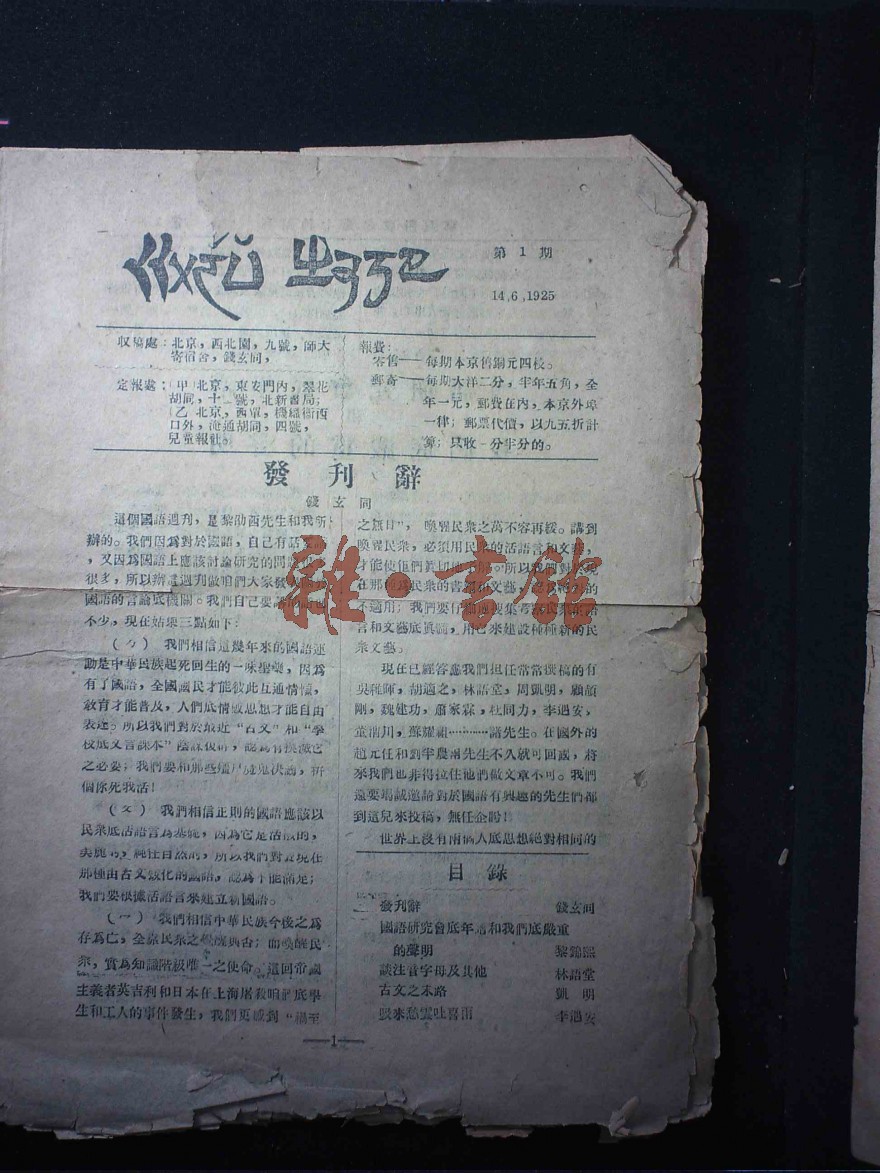 第 1 期
14,6,1925
收稿處:北京,西北園,九號,師大
寄宿舍,錢玄同,
定報處:(甲)北京,東安門內,翠花
胡同,十 號,北新書局;
(乙 北京,西單,機織衛西
口外,淹通胡同,四號,
兒童報社。
報費:
零售——每期本京舊銅元四枚。
郵寄——每期大洋二分,半年五角,全
年一元,郵費在內,本京外埠
一律;郵票代價,以九五折計
算;只收一分半分的。
發刊辭
錢玄同
這個國語週刊,是黎劭西先生和我所
辦的。我們因為對於國語,自己有話要說
,又因為國語上應該討論研究的問題
很多,所以辦這週刊做咱們大家發
國語的言論底機關。我們自己要說的話也
不少,現在姑舉三點如下:
(ㄅ) 我們相信這幾年來的國語運
動是中華民族起死回生的一味聖藥,因為
有了國語,全國國民才能彼此互通情愫,
教育才能普及,人們底情感思想才能自由
表達。所以我們對於最近“古文”和“學
校底文言課本”陰謀復辟,認為有撲滅它
之必要;我們要和那些殭尸魔鬼決鬥,拚
個你死我活!
(ㄆ) 我們相信正則的國語應該以
民衆底活語言為基礎,因為它是活潑的,
美麗的,純任自然的,所以我們對於現在
那種由古文蛻化的國語,認為不能滿足;
我們要根據活語言來建立新國語。
(ㄇ) 我們相信中華民族今後之為
存為亡,全靠民衆之覺醒與否;而喚醒民
衆,實為知識階級唯一之使命。這回帝國
主義者英吉利和日本在上海屠殺咱們底學
生和工人的事件發生,我們更感到“禍至
之無日”,喚醒民衆之萬不容再緩。講到
喚醒民衆,必須用民衆的活語言和文藝,
才能使他們真切地了解。所以我們對於現
在那種為民衆的書報和文藝,認為
不適用;我們要仔細地搜集考察民衆底語
言和文藝底真髓,用它來建設種種新的民
衆文藝。
現在已經答應我們担任常常撰稿的有
吳稚暉,胡適之,林語堂,周凱明,顧頡
剛,魏建功,蕭家霖,杜同力,李遇安,
董渭川,蘇耀祖………諸先生。在國外的
趙元任和劉半農兩先生不久就可回國,將
來我們也非得拉住他們做文章不可。我們
還要竭誠邀請對於國語有興趣的先生們都
到這兒來投稿,無任企盼!
世界上沒有兩個人底思想絕對相同的
目錄
發刊辭 錢玄同
國語研究會底年譜和我們底嚴重
的聲明 黎錦熙
談注音字母及其他 林語堂
古文之末路 凱明
眼來愁雲吐喜雨 李遇安
—1—
雜·書館